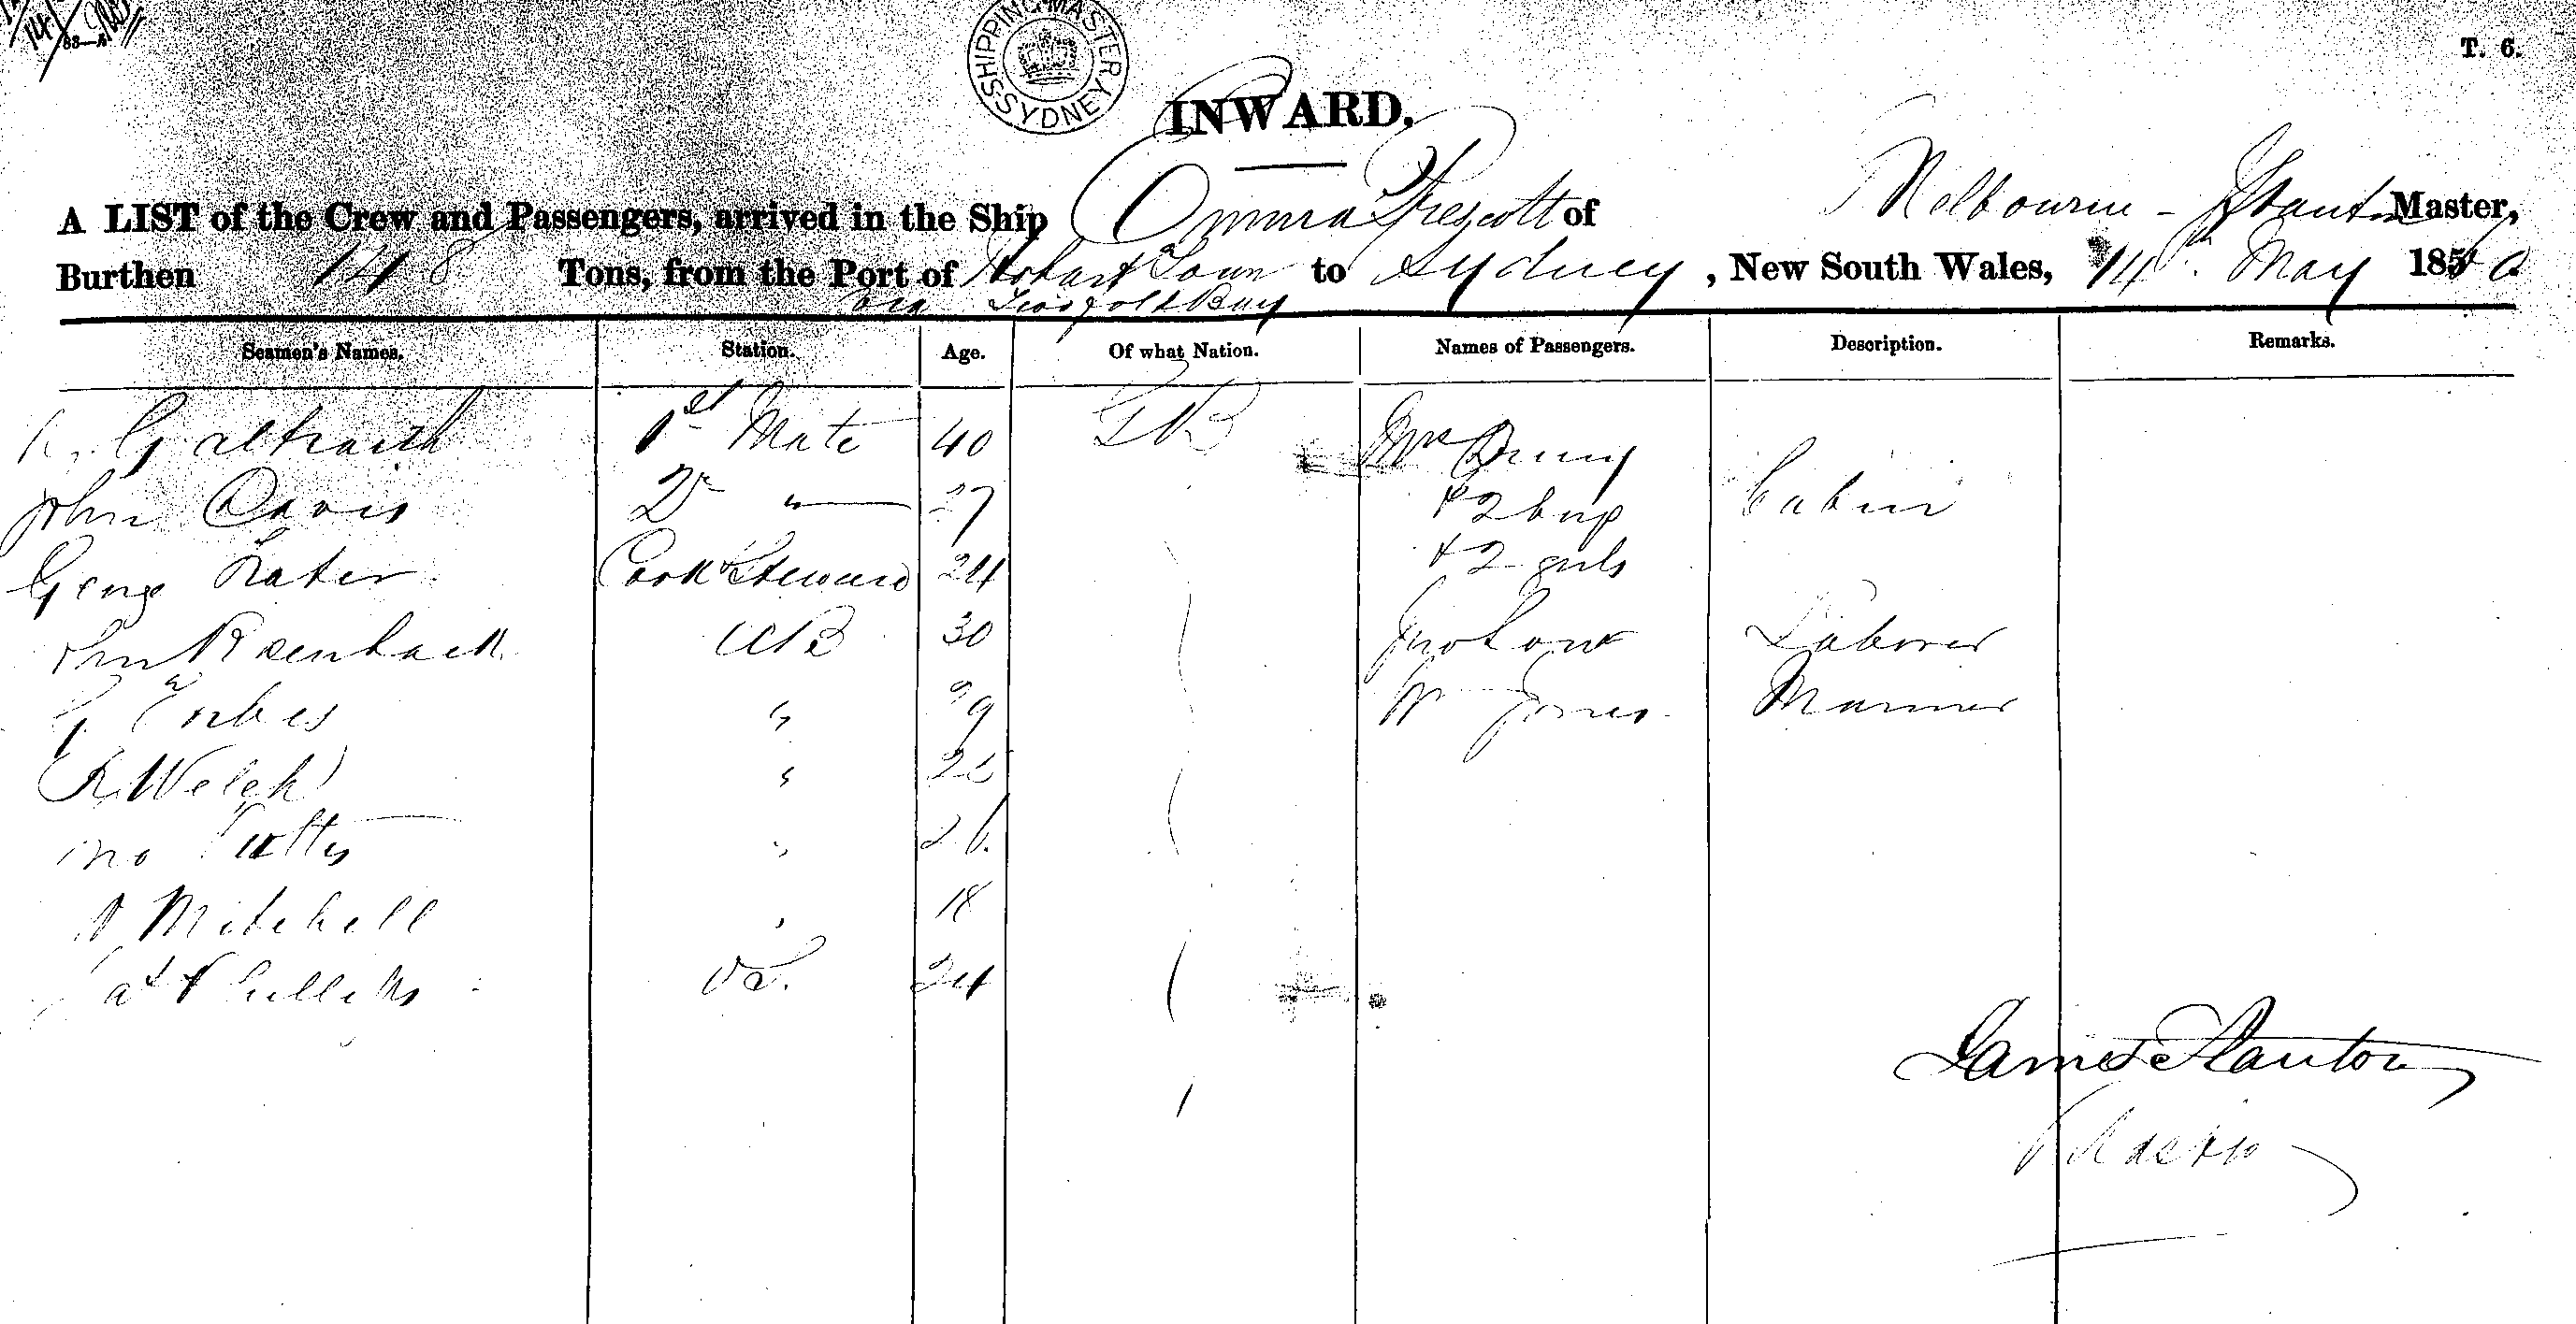 SHIPPING MASTER SYDNEY
T. 6.
INWARD.
A LIST of the Crew and Passengers, arrived in the Ship Emma Prescott of Melbourne - J Stanton Master,
Burthen 148 Tons, from the Port of Hobart Town to Sydney, New South Wales, 14th May 1850
via Twofold Bay
Seamen's Names. Station. Age. Of what Nation. Names of Passengers. Description. Remarks.
Galbraith 1st Mate 40 GB Mrs
John Davis 2d " 27 & 2 boys Cabin
George Cook & Steward 24 & 2 girls
AB 30 Jno Laborer
G Forbes " 29 Wm Jones Mariner
R Welch "
Jno " 26
Mitchell " 18
24
James Stanton